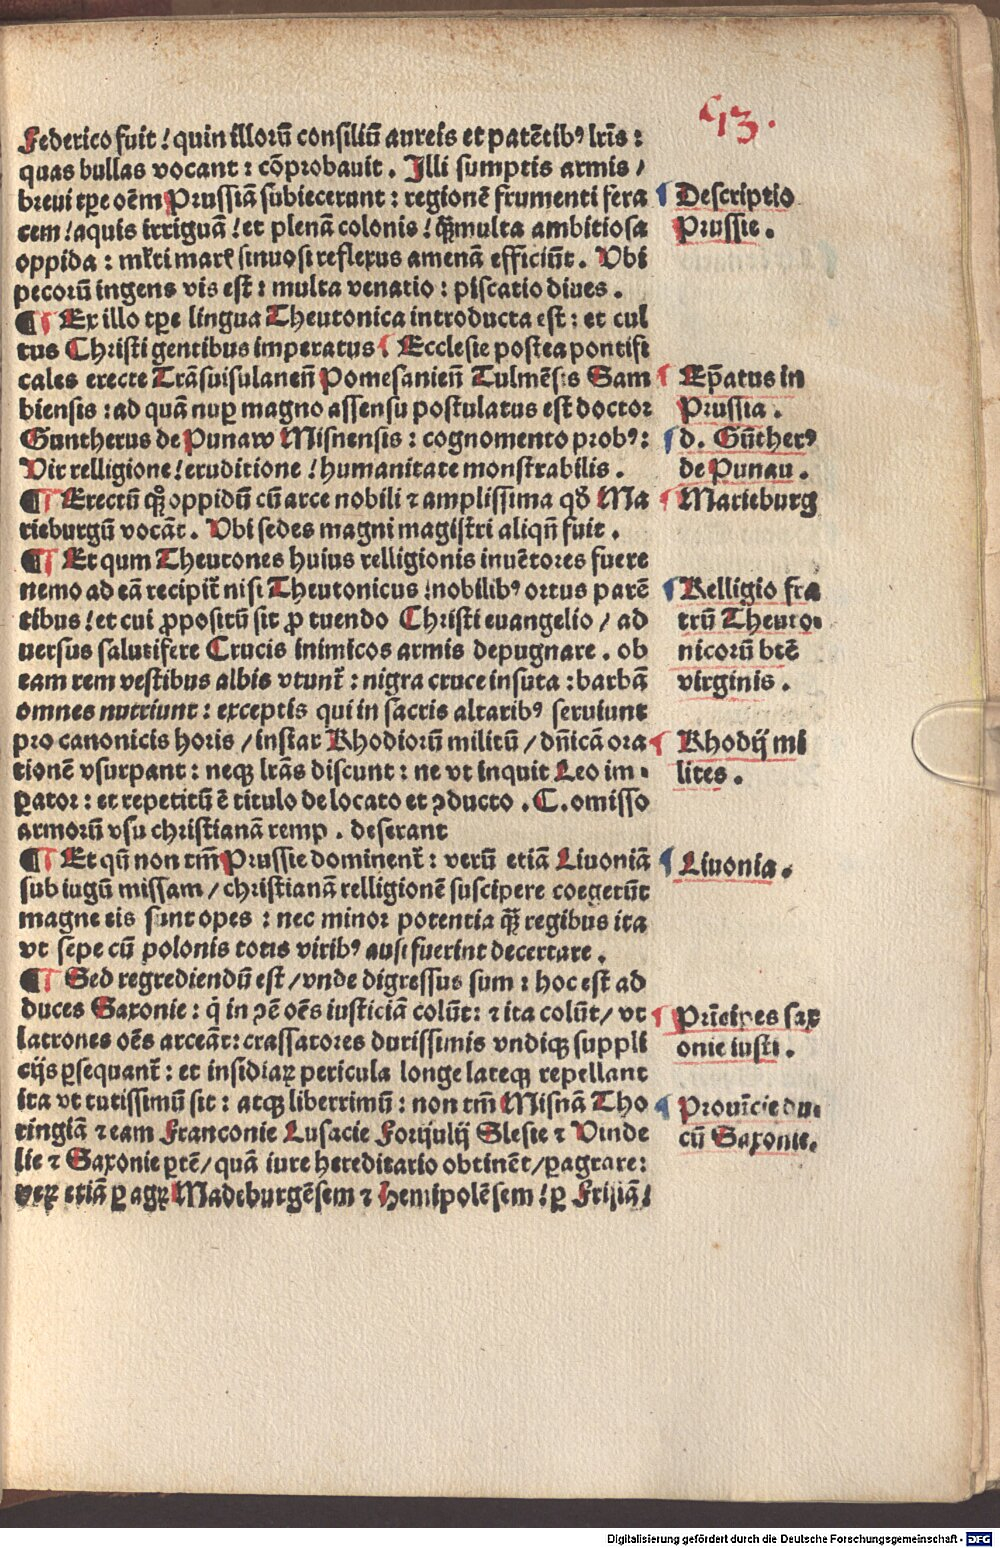 13.
Federico fuit! quin illorū consiliū aureis et patētibꝰ lr̄is:
quas bullas vocant: cōprobauit. Illi sumptis armis /
breui tꝑe oēm Prussiā subiecerunt: regionē frumenti fera
cem! aquis irriguā! et plenā colonis! q̄ꝫ multa ambitiosa
oppida: ml̄ti marꝭ sinuosi reflexus amenā efficiūt. Ubi
pecorū ingens vis est: multa venatio: piscatio diues.
¶ Ex illo tꝑe lingua Theutonica introducta est: et cul
tus Christi gentibus imperatus ¶ Ecclesie postea pontifi
cales erecte Trāsuisulaneñ Pomesanieñ Culmēsis Sam
biensis: ad quā nuꝑ magno assensu postulatus est doctor
Guntherus de Punaw Misnensis: cognomento probꝰ:
Vir relligione! eruditione! humanitate monstrabilis.
¶ Erectū qꝫ oppidū cū arce nobili ⁊ amplissima qḋ Ma
rieburgū vocāt. Ubi sedes magni magistri aliqñ fuit.
¶ Et qum Theutones huius relligionis inuētores fuere
nemo ad eā recipit̄ nisi Theutonicus: nobilibꝰ ortus parē
tibus! et cui ꝓpositū sit ꝓ tuendo Christi euangelio / ad
uersus salutifere Crucis inimicos armis depugnare. ob
eam rem vestibus albis vtunt̄: nigra cruce insuta: barbā
omnes nutriunt: exceptis qui in sacris altaribꝰ seruiunt
pro canonicis horis / instar Rhodiorū militū / dn̄icā ora
tionē vsurpant: neqꝫ lr̄as discunt: ne vt inquit Leo im-
ꝑator: et repetitū ē titulo de locato et ꝯducto. C. omisso
armorū vsu christianā remp. deserant
¶ Et qū non tm̄ Prussie dominent̄: verū etiā Liuoniā
sub iugū missam / christianā relligionē suscipere coegerūt
magne eis sunt opes: nec minor potentia q̄ꝫ regibus ita
vt sepe cū polonis totis viribꝰ ausi fuerint decertare.
¶ Sed regrediendū est / vnde digressus sum: hoc est ad
duces Saxonie: q̇ in ꝯē oēs iusticiā colūt: ⁊ ita colūt / vt
latrones oēs arceāt: crassatores durissimis vndiqꝫ suppli
cijs ꝑsequant̄: et insidiaꝝ pericula longe lateqꝫ repellant
ita vt tutissimū sit: atqꝫ liberrimū: non tm̄ Misnā Tho
ringiā ⁊ eam Franconie Lusacie Forijulij Slesie ⁊ Vinde
lie ⁊ Saxonie ꝑtē / quā iure hereditario obtinēt / ꝑagrare:
veꝝ etiā ꝑ agꝝ Madeburgēsem ⁊ Hemipolēsem! ꝑ Frisiā!
Descriptio
Prussie.
Ep̄atus in
Prussia.
d. Gūtherꝰ
de Punau.
Marieburg
Relligio fra
trū Theuto-
nicorū btē
virginis.
Rhodij mi
lites.
Liuonia.
Prīcipes sax
onie iusti.
Prouīcie du-
cū Saxonie.
Digitalisierung gefördert durch die Deutsche Forschungsgemeinschaft - DFG